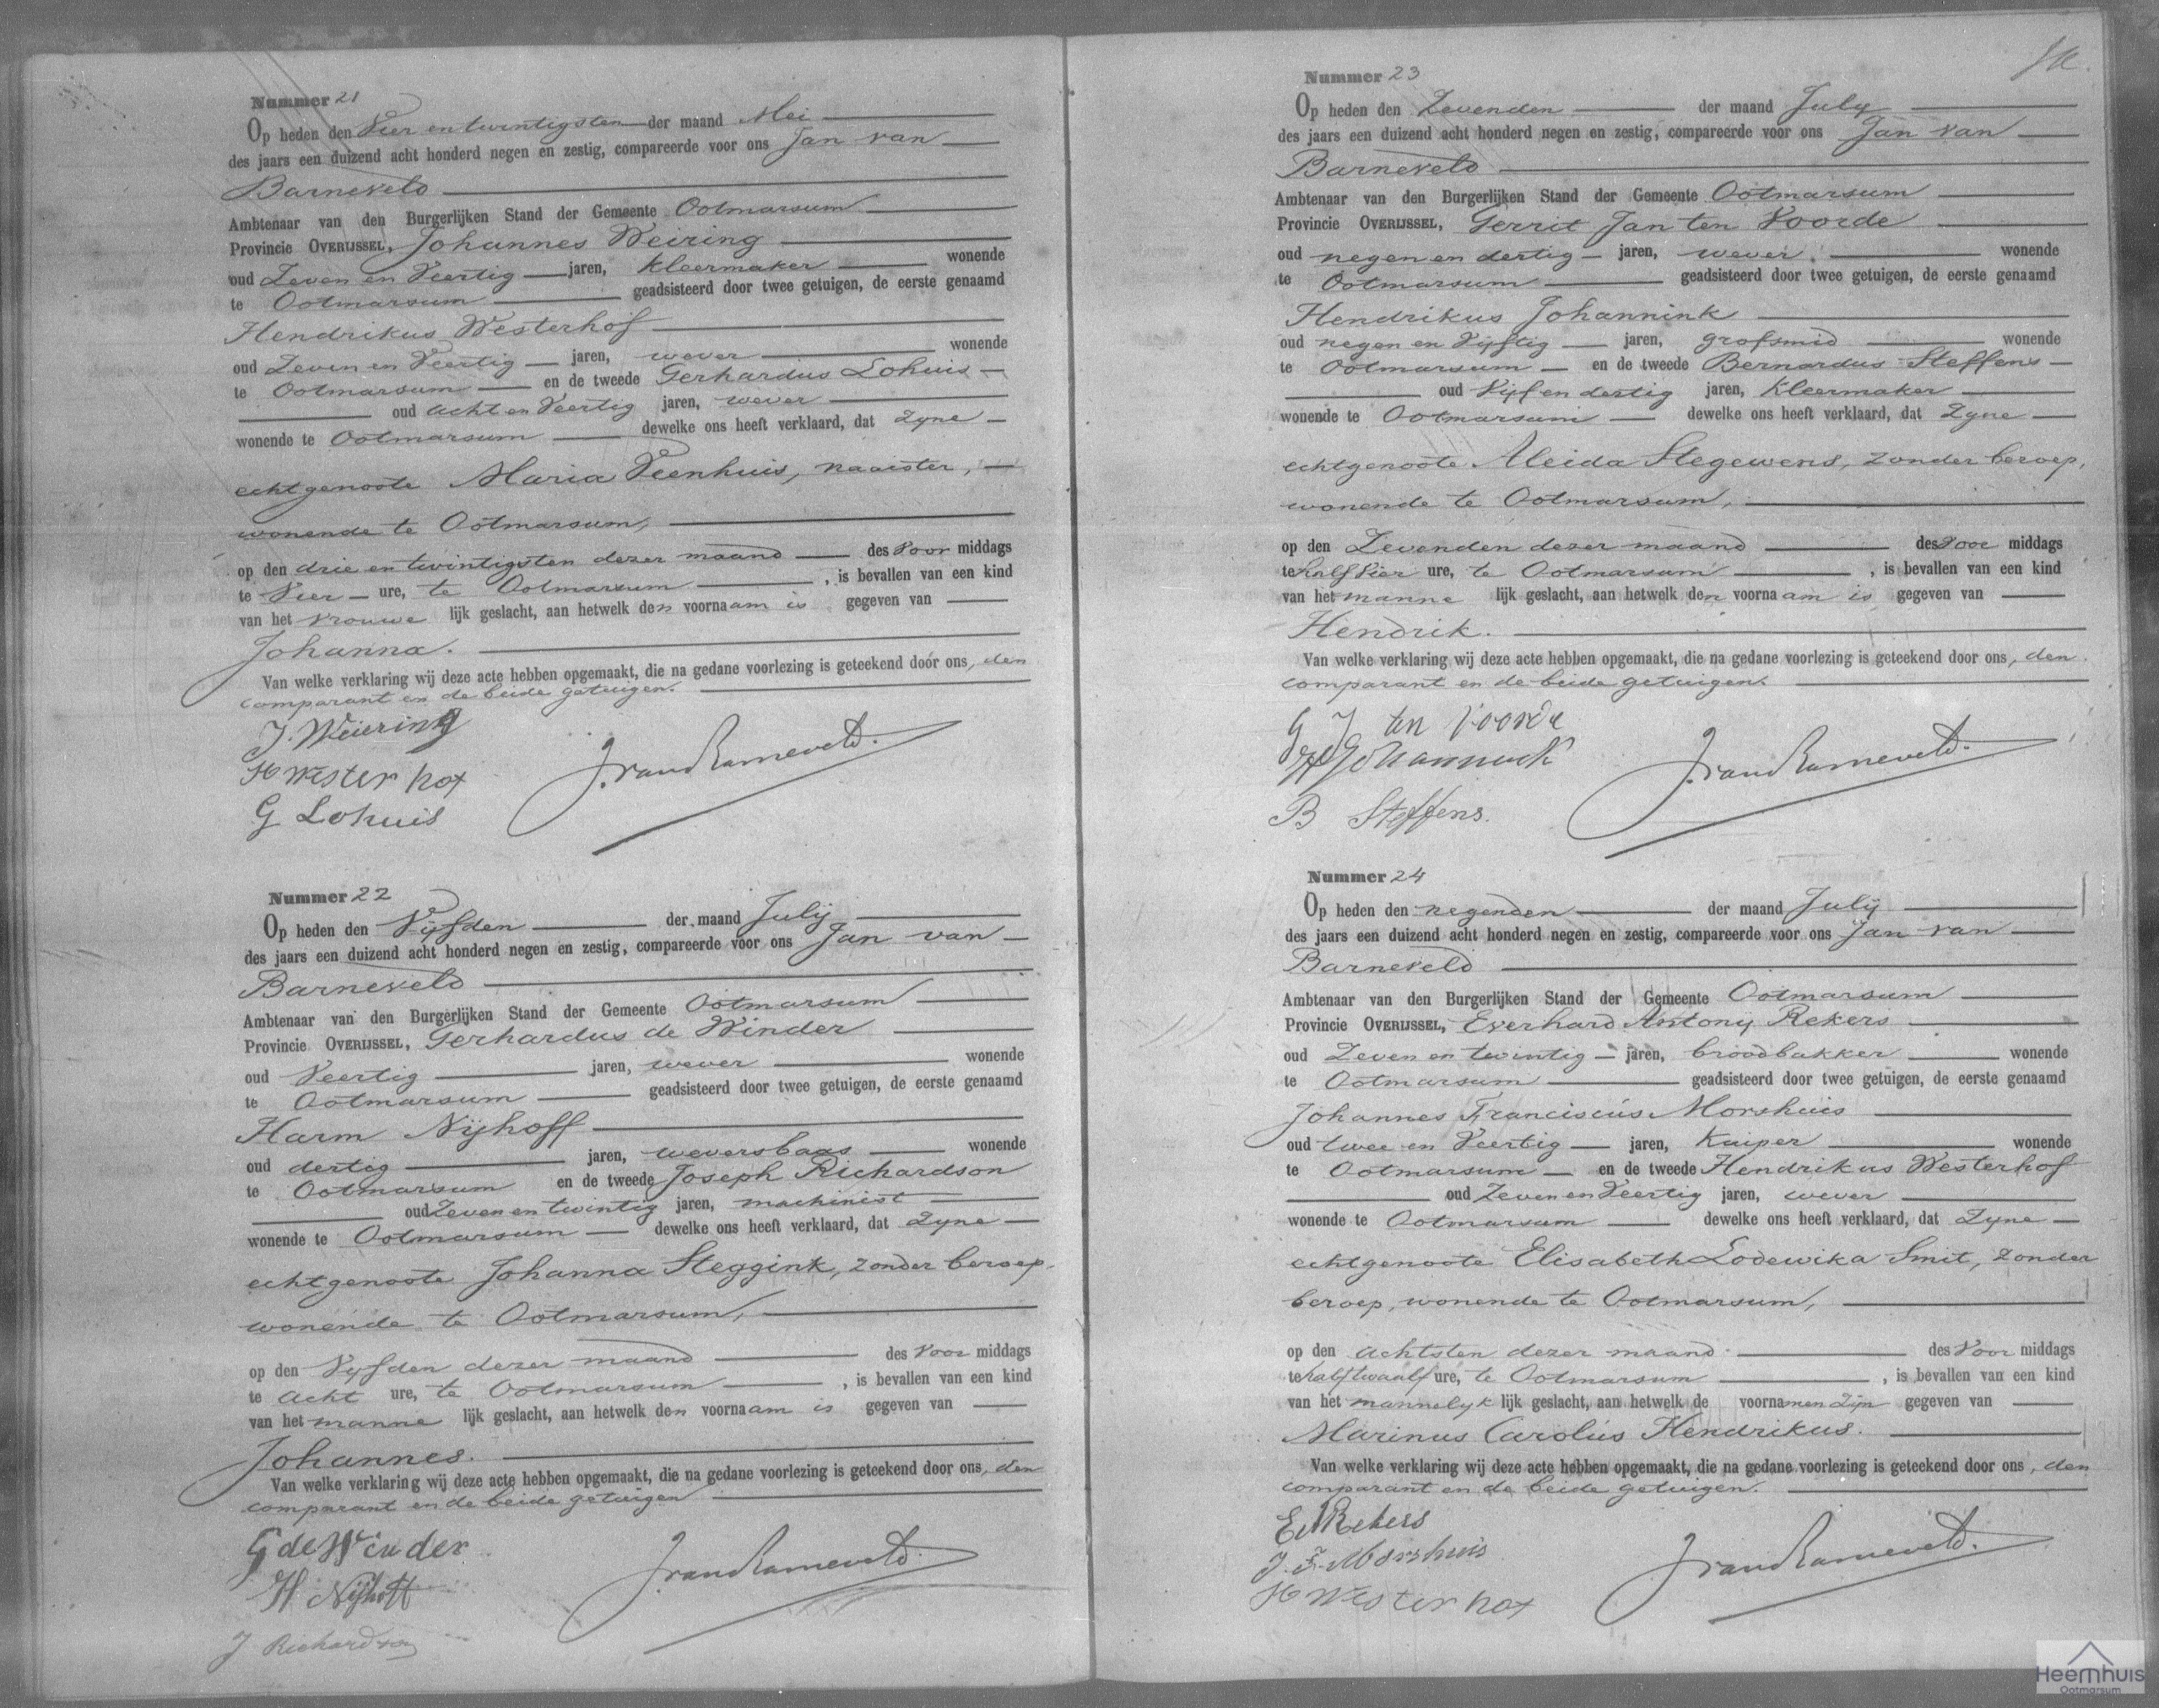 Nummer 21
Op heden den Vier en twintigsten der maand Mei
des jaars een duizend acht honderd negen en zestig, compareerde voor ons Jan van
Barneveld
Ambtenaar van den Burgerlijken Stand der Gemeente Ootmarsum
Provincie OVERIJSSEL, Johannes Weiring
oud Zeven en Veertig jaren, kleermaker wonende
te Ootmarsum geadsisteerd door twee getuigen, de eerste genaamd
Hendrikus Westerhof
oud Zeven en Veertig jaren, wever wonende
te Ootmarsum en de tweede Gerhardus Lohuis
oud acht en Veertig jaren, wever
wonende te Ootmarsum dewelke ons heeft verklaard, dat Zyne
echtgenoote Maria Veenhuis, naaister,
wonende te Ootmarsum,
op den drie en twintigsten dezer maand des Voor middags
te Vier ure, te Ootmarsum, is bevallen van een kind
van het vrouwe lijk geslacht, aan hetwelk den voornaam is gegeven van
Johanna.
Van welke verklaring wij deze acte hebben opgemaakt, die na gedane voorlezing is geteekend door ons, den
comparant en de beide getuigen.
J. Weiering
H Westerhof
G Lohuis
J. van Barneveld.
Nummer 22
Op heden den Vyfden der maand July
des jaars een duizend acht honderd negen en zestig, compareerde voor ons Jan van
Barneveld
Ambtenaar van den Burgerlijken Stand der Gemeente Ootmarsum
Provincie OVERIJSSEL, Gerhardus de Winder
oud Veertig jaren, wever wonende
te Ootmarsum geadsisteerd door twee getuigen, de eerste genaamd
Harm Nijhoff
oud dertig jaren, weversbaas wonende
te Ootmarsum en de tweede Joseph Richardson
oud Zeven en twintig jaren, machinist
wonende te Ootmarsum dewelke ons heeft verklaard, dat Zyne
echtgenoote Johanna Steggink, zonder beroep,
wonende te Ootmarsum,
op den Vyfden dezer maand des Voor middags
te acht ure, te Ootmarsum, is bevallen van een kind
van het manne lijk geslacht, aan hetwelk den voornaam is gegeven van
Johannes.
Van welke verklaring wij deze acte hebben opgemaakt, die na gedane voorlezing is geteekend door ons, den
comparant en de beide getuigen
G de Winder
H. Nijhoff
J Richardson
J. van Barneveld.
Nummer 23
Op heden den Zevenden der maand July
des jaars een duizend acht honderd negen en zestig, compareerde voor ons Jan van
Barneveld
Ambtenaar van den Burgerlijken Stand der Gemeente Ootmarsum
Provincie OVERIJSSEL, Gerrit Jan ten Voorde
oud negen en dertig jaren, wever, wonende
te Ootmarsum geadsisteerd door twee getuigen, de eerste genaamd
Hendrikus Johannink
oud negen en Vyftig jaren, grofsmid wonende
te Ootmarsum en de tweede Bernardus Steffens
oud Vijf en dertig jaren, Kleermaker
wonende te Ootmarsum dewelke ons heeft verklaard, dat Zyne
echtgenoote Aleida Stegewens, zonder beroep,
wonende te Ootmarsum,
op den Zevenden dezer maand des Voor middags
te half Vier ure, te Ootmarsum, is bevallen van een kind
van het manne lijk geslacht, aan hetwelk den voornaam is gegeven van
Hendrik.
Van welke verklaring wij deze acte hebben opgemaakt, die na gedane voorlezing is geteekend door ons, den
comparant en de beide getuigen.
G J ten Voorde
Johannink
B Steffens.
J. van Barneveld.
Nummer 24
Op heden den negenden der maand July
des jaars een duizend acht honderd negen en zestig, compareerde voor ons Jan van
Barneveld
Ambtenaar van den Burgerlijken Stand der Gemeente Ootmarsum
Provincie OVERIJSSEL, Everhard Antony Rekers
oud Zeven en twintig jaren, broodbakker wonende
te Ootmarsum geadsisteerd door twee getuigen, de eerste genaamd
Johannes Franciscus Morshuis
oud twee en Veertig jaren, Kuiper wonende
te Ootmarsum en de tweede Hendrikus Westerhof
oud Zeven en Veertig jaren, wever
wonende te Ootmarsum dewelke ons heeft verklaard, dat Zyne
echtgenoote Elisabeth Lodewika Smit, zonder
beroep, wonende te Ootmarsum,
op den achtsten dezer maand des Voor middags
te half twaalf ure, te Ootmarsum, is bevallen van een kind
van het mannelyk lijk geslacht, aan hetwelk de voornamen Zijn gegeven van
Marinus Carolus Hendrikus.
Van welke verklaring wij deze acte hebben opgemaakt, die na gedane voorlezing is geteekend door ons, den
comparant en de beide getuigen.
E A Rekers
J. F. Morshuis
H Westerhof
J. van Barneveld.
Heemhuis
Ootmarsum